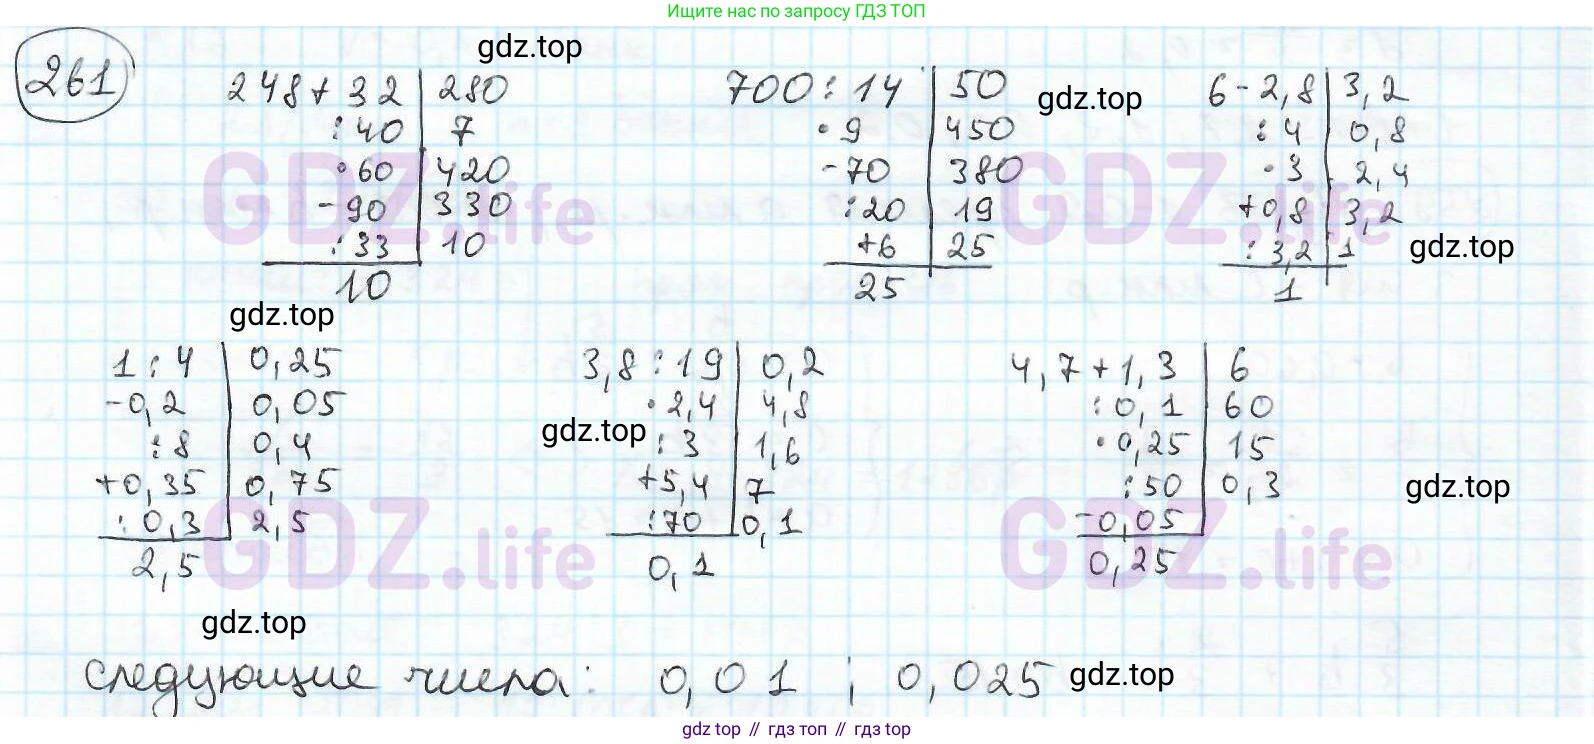 Ищите нас по запросу ГДЗ ТОП
gdz.top
261
248+32 | 280
:40 | 7
·60 | 420
-90 | 330
:33 | 10
10
700:14 | 50
·9 | 450
-70 | 380
:20 | 19
+6 | 25
25
gdz.top
6-2,8 | 3,2
:4 | 0,8
·3 | 2,4
+0,8 | 3,2
:3,2 | 1
1
gdz.top
GDZ.life
GDZ.life
gdz.top
1:4 | 0,25
-0,2 | 0,05
:8 | 0,4
+0,35 | 0,75
:0,3 | 2,5
2,5
gdz.top
3,8:19 | 0,2
·2,4 | 4,8
:3 | 1,6
+5,4 | 7
:70 | 0,1
0,1
4,7+1,3 | 6
:0,1 | 60
·0,25 | 15
:50 | 0,3
-0,05
0,25
gdz.top
GDZ.life
GDZ.life
gdz.top
следующие числа: 0,01 ; 0,025
gdz.top
gdz top // гдз топ // gdz top